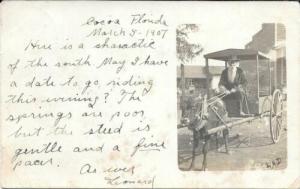 Cocoa Florida
March 5-1907
Here is a charactic
of the south May I have
a date to go, riding
this evining? The
springs are poor
but the steed is
gentle and a fine
pacer.
As ever
Leonard